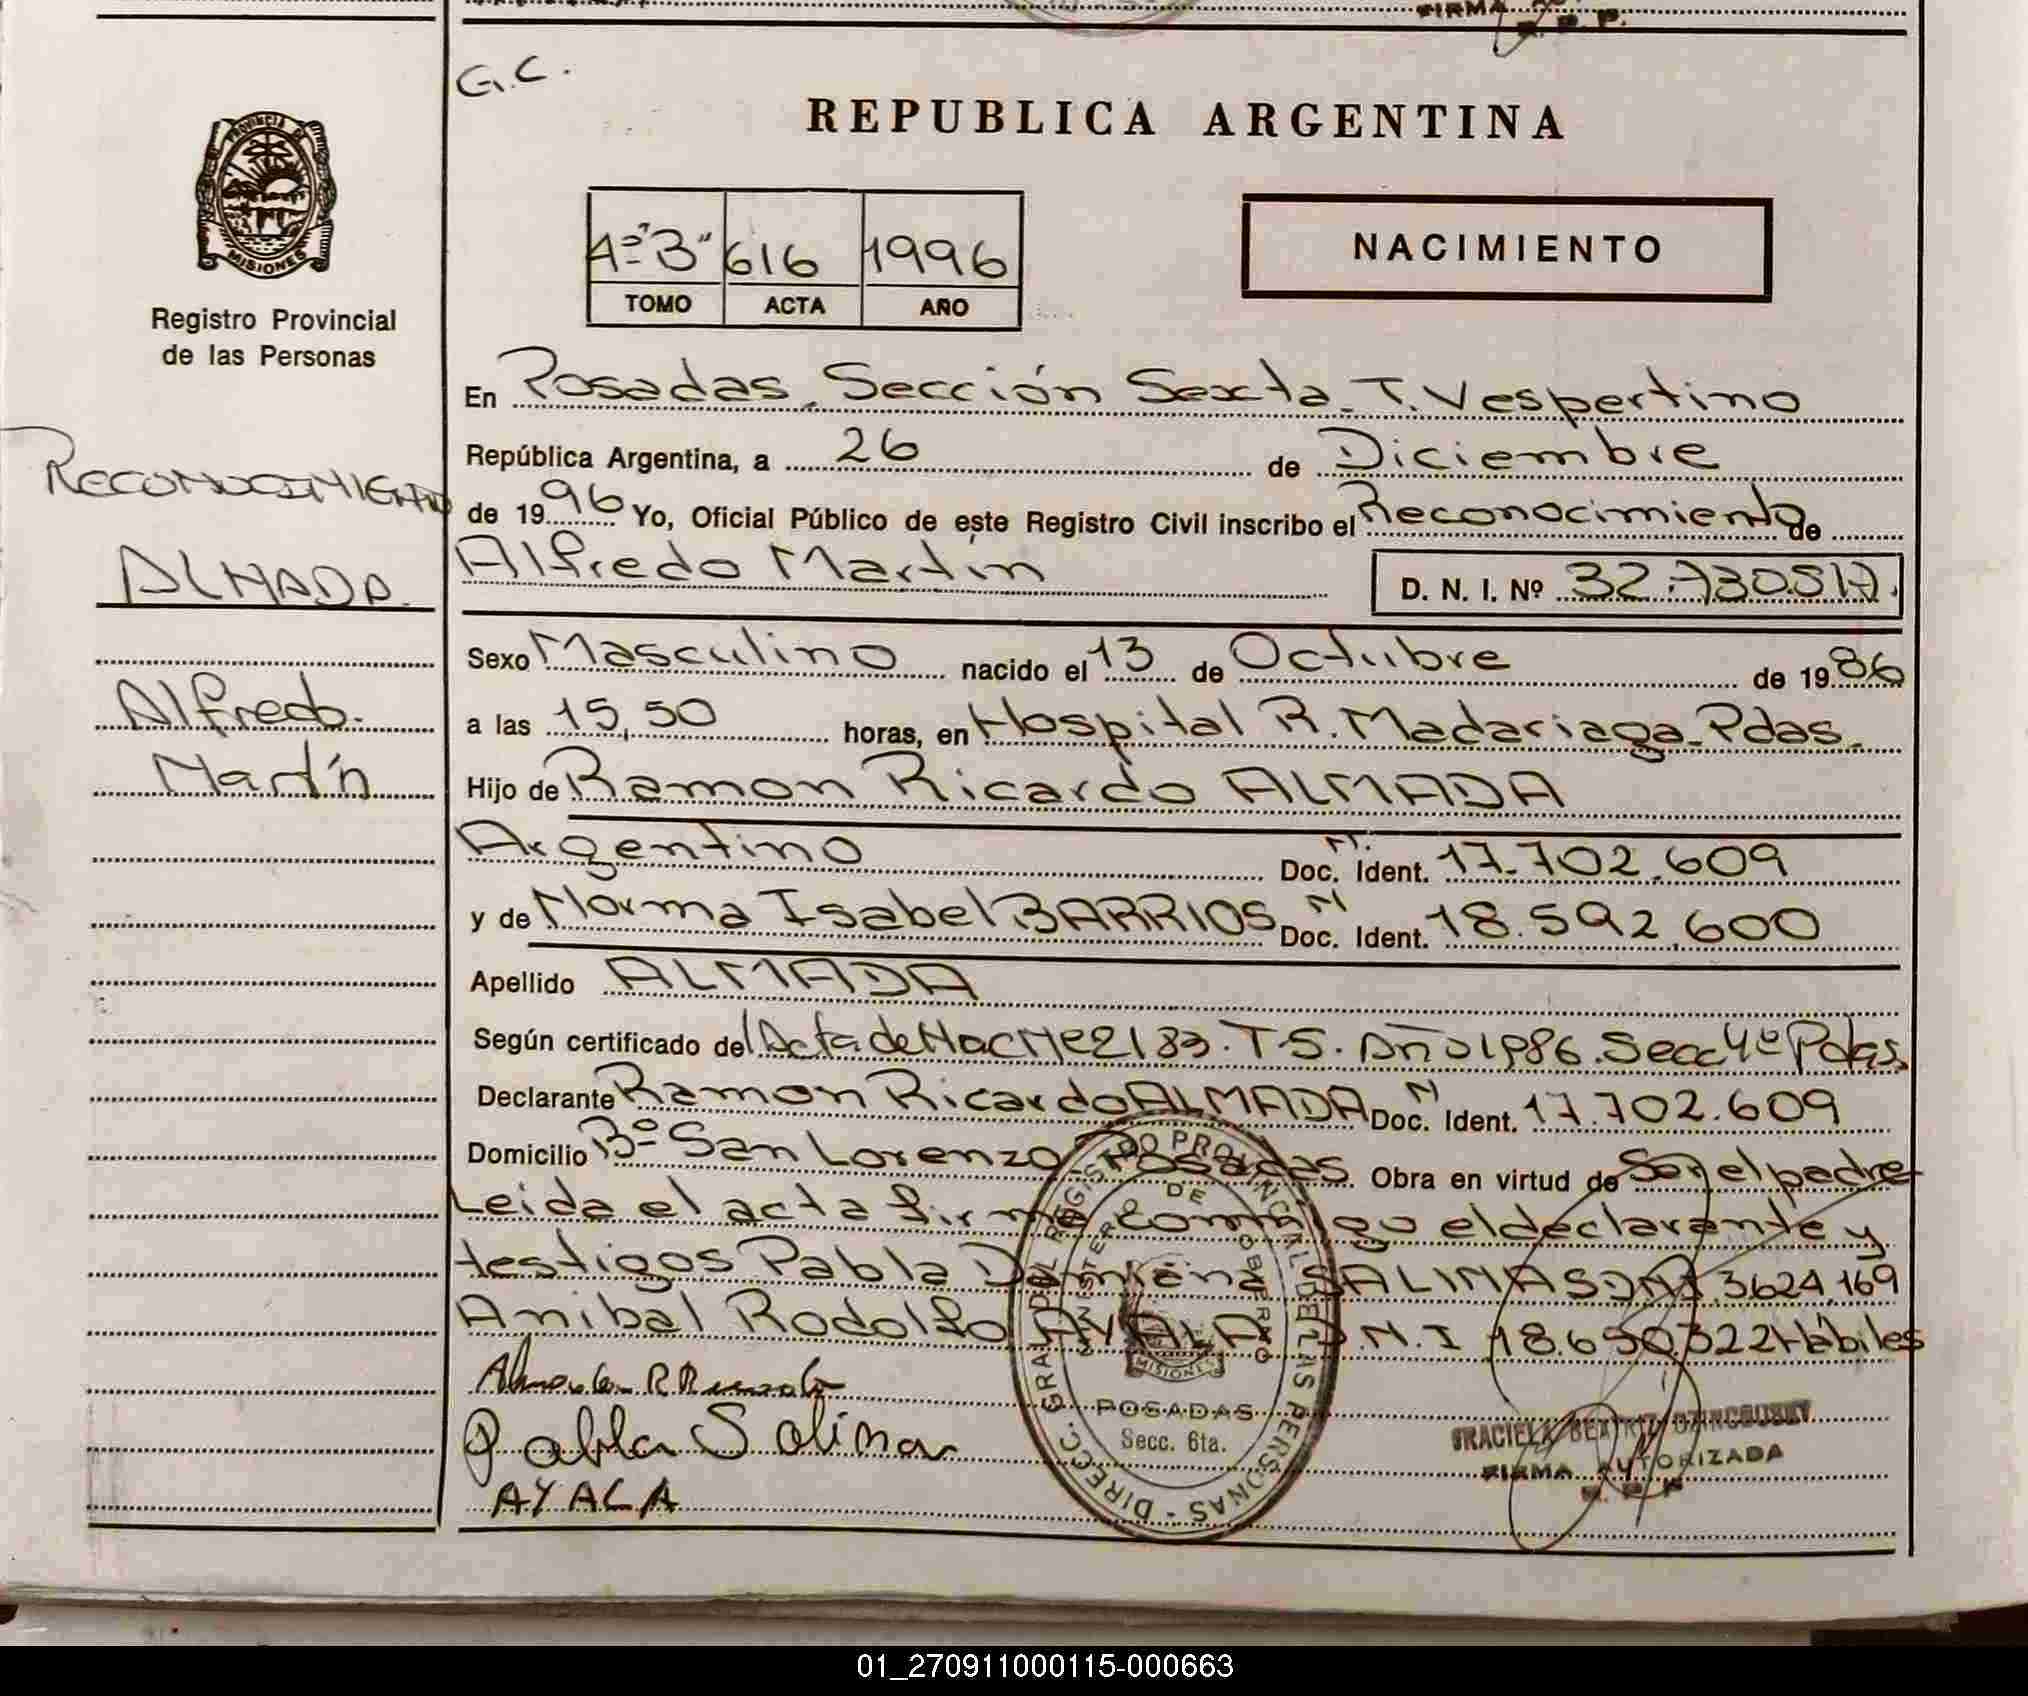 FIRMA
R. P. P.
G.C.
REPUBLICA ARGENTINA
PROVINCIA DE
MISIONES
Registro Provincial
de las Personas
4º "B" 616 1996
TOMO ACTA AÑO
NACIMIENTO
RECONOCIMIENTO
ALMADA.
Alfredo.
Martín
En Posadas. Sección Sexta. T. Vespertino
República Argentina, a 26 de Diciembre
de 1996 Yo, Oficial Público de este Registro Civil inscribo el Reconocimiento de
Alfredo Martín D. N. I. Nº 32.730.517.
Sexo Masculino nacido el 13 de Octubre de 1986
a las 15,50 horas, en Hospital R. Madariaga. Pdas.
Hijo de Ramon Ricardo ALMADA
Argentino N. Doc. Ident. 17.702.609
y de Norma Isabel BARRIOS N Doc. Ident. 18.592.600
Apellido ALMADA
Según certificado del Acta de Nac Nº 2183. T-5. Año 1986. Secc 4º Pdas.
Declarante Ramon Ricardo ALMADA N Doc. Ident. 17.702.609
Domicilio Bº San Lorenzo Posadas. Obra en virtud de Ser el padre
Leida el acta firma conmigo el declarante y
testigos Pabla Damiana SALINAS DNI 3624.169
Anibal Rodolfo AYALA D.N.I 18.650.322 Hábiles
Pabla Salinas
AYALA
DIRECC. GRAL. DEL REGISTRO PROVINCIAL DE LAS PERSONAS -
MINISTERIO DE GOBIERNO
MISIONES
POSADAS
Secc. 6ta.
GRACIELA BEATRIZ
FIRMA AUTORIZADA
R. P. P.
01_270911000115-000663